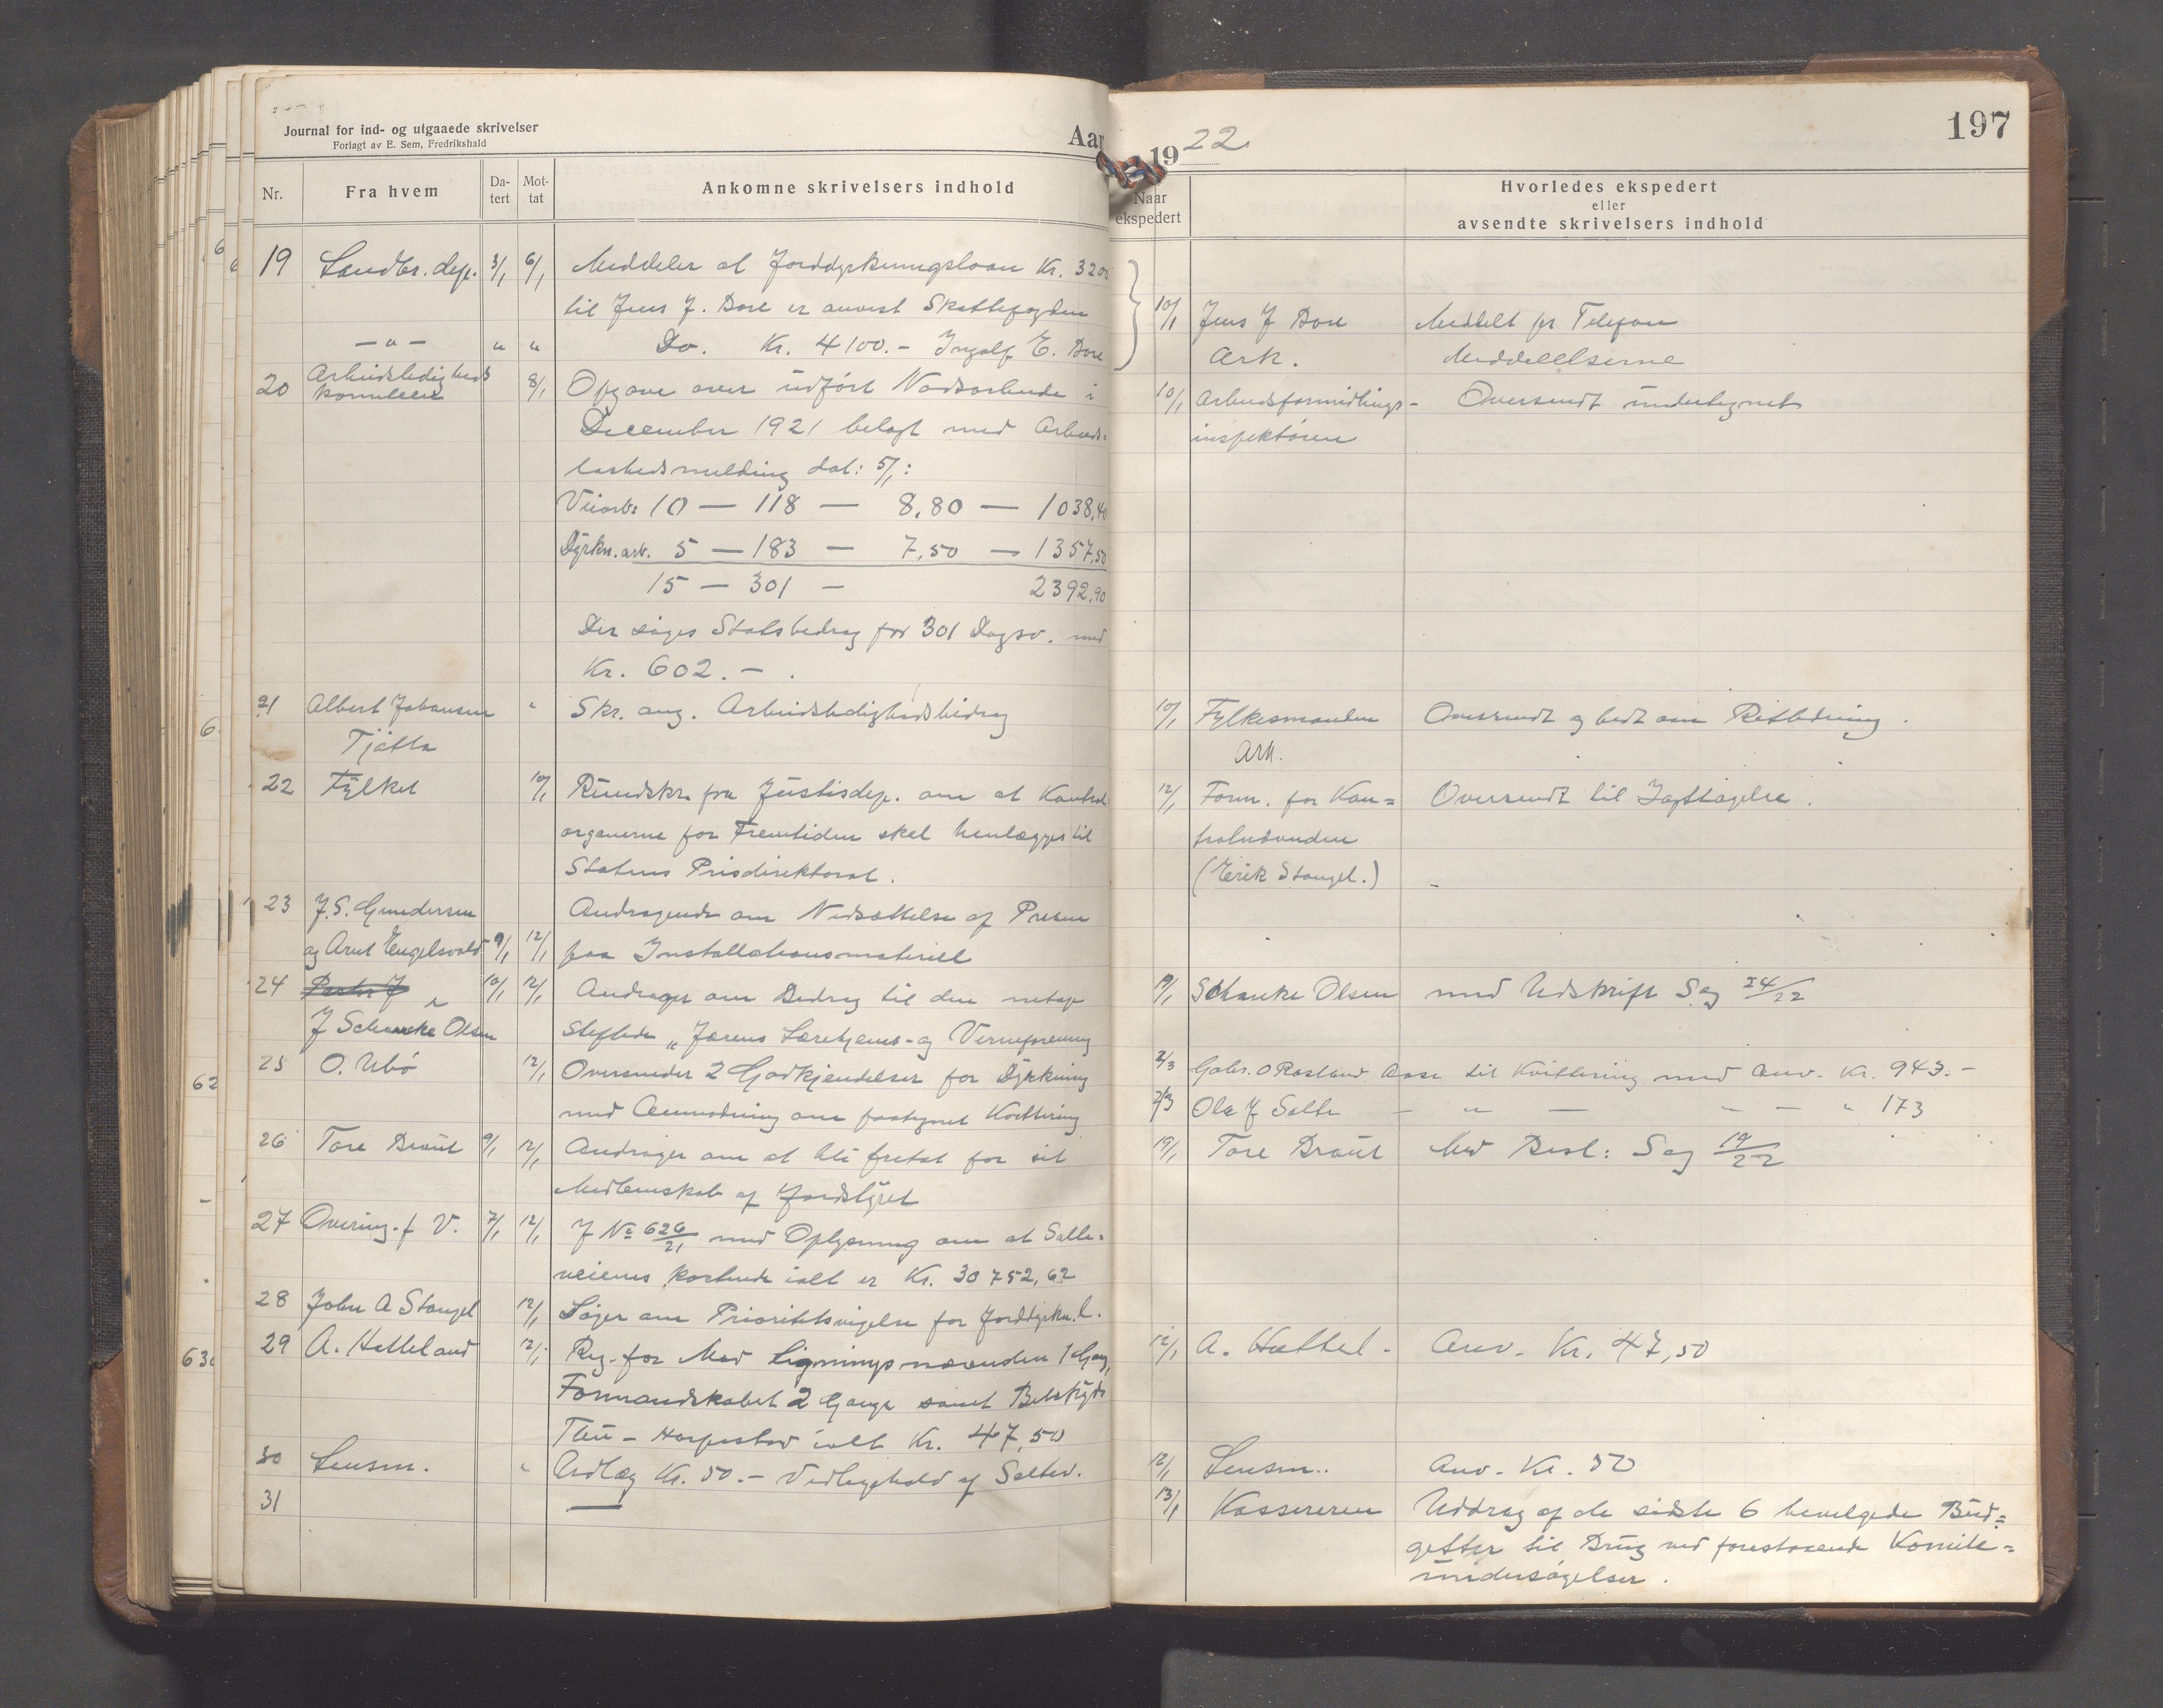 Journal for ind- og utgaaede skrivelser
Forlagt av E. Sem, Fredrikshald
Aar
1922
197
Nr.
Fra hvem
Da-
tert
Mot-
tat
Ankomne skrivelsers indhold
Naar
ekspedert
Hvorledes ekspedert
eller
avsendte skrivelsers indhold
19 Landbr. dep. 3/1 6/1 Meddeler at Jorddyrkningslaan Kr. 3200
til Jens J. Bore er anvist Skattefogden
10/1 Jens J Bore Meddelt pr Telefon
— " — " " Do. Kr. 4100.- Ingolf E. Bore
Ark. Meddelelserne
20 Arbeidsledigheds
komiteen 8/1 Opgave over utført Nødsarbeide i
10/1 Arbeidsformidlings- Oversendt undertegnet
inspektøren
December 1921 belagt med Arbeids=
løshedsmelding dat: 5/1:
Veiarb: 10 — 118 — 8,80 — 1038,40
Dyrkn. arb. 5 — 183 — 7,50 — 1357,50
15 — 301 — 2392,90
Der søges Statsbedrag for 301 Dagsv. med
Kr. 602.-
21 Albert Johansen " Skr. ang. Arbeidsledighedsbidrag
Tjøtta
10/1 Fylkesmanden Oversendt og bedt om Retledning.
Ark.
22 Fylket 10/1 Rundskr. fra Justisdep. om at Kontrol
organerne for Fremtiden skal henlægges til
Statens Prisdirektorat.
12/1 Form. for Kon= Oversendt til Iagttagelse.
trolnævnden
(Eirik Stangel.)
23 J. S. Gundersen Andragende om Nedsættelse af Prisen
og Arnt Engelsvold 9/1 12/1 paa Installationsmateriell
24 Pastor J 10/1 12/1 Andrager om Bedrag til den
J Schancke Olsen "Jærens Lærehjems- og Verneforening
19/1 Schanke Olsen med Udskrift Sag 24/22
25 O. Ubø 12/1 Oversender 2 Godkjendelser for Dyrkning
med Anmodning om paategnet Kvittering
2/3 Gabr. O Rosland Aase til Kvittering med Anv. Kr. 943.-
2/3 Ola J Salte — " — " — " 173
26 Tore Braut 9/1 12/1 Andrager om at bli fritat for sit
Medlemskab af Jordstyret
19/1 Tore Braut Med Besl: Sag 19/22
27 Overing. f V. 7/1 12/1 J No 626/21 med Oplysning om at Salte-
veiens kostende ialt er Kr. 30752,62
28 John A Stangel 12/1 Søger om Prioritetsvigelse for Jorddyrkn. l.
29 A. Hatteland 12/1 Reg. for Møde Ligningsnævnden 1 Gang,
Formandskabet 2 Gange samt
Thu – Harpestad ialt Kr. 47,50
12/1 A. Hattel. Anv. Kr. 47,50
30 Lensm. " Udlæg Kr. 50.- Vedligehold af Saltev.
12/1 Lensm. Anv. Kr. 50
31 —
13/1 Kassereren Uddrag af de sidste 6 bevilgede Bud=
getter til Brug ved forestaaende Komite=
undersøgelser.
6
62